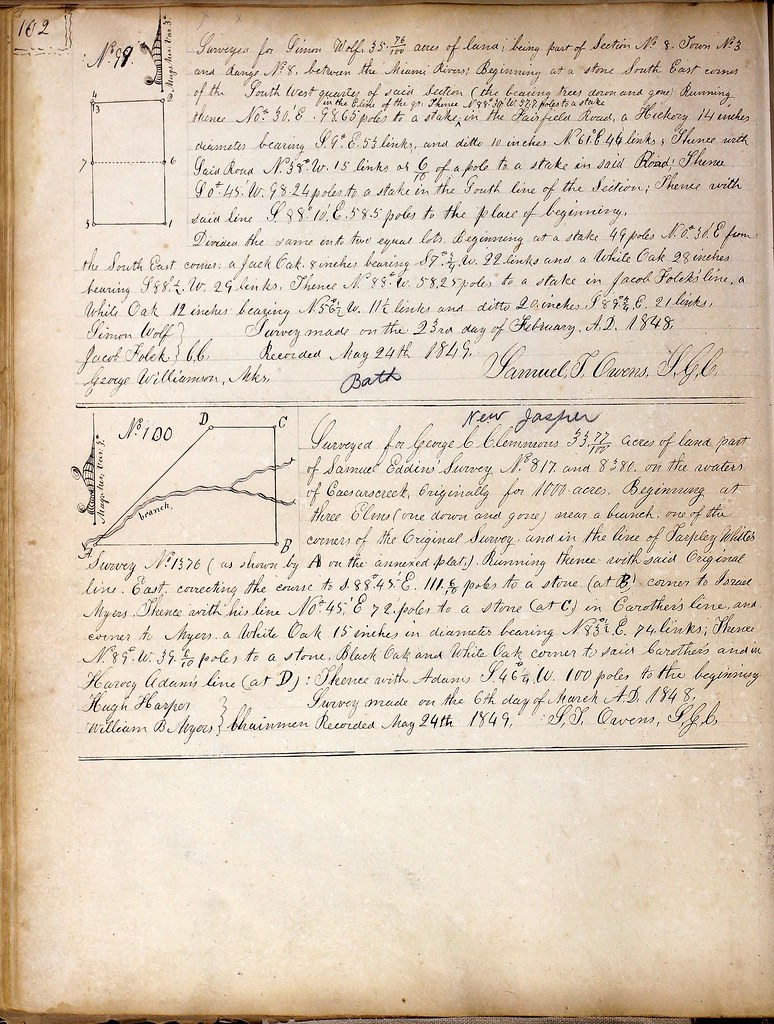 102
No. 99.
Mag. Mer. Var. 5°
4
3
7
6
5
1
Surveyed for Simon Wolf. 35 76/100 acres of land; being part of Section No 8. Town No 3
and Range No 8. between the Miami Rivers; Beginning at a stone South East corner
of the South West quarter of said Section (the bearing trees down and gone) Running
in the E line of the qr. Thence N. 88° 30' W. 57.7 poles to a stake
thence No° 30'. E. 98.65 poles to a stake, in the Fairfield Road, a Hickory 14 inches
diameter bearing S. 9° E. 53 links, and ditto 10 inches N. 61° E. 46 links; Thence with
Said Road N. 38° W. 15 links or 6/10 of a pole to a stake in said Road; Thence
S. 0° 45' W. 98.24 poles to a stake in the South line of the Section; Thence with
said line S. 88° 10' E. 58.5 poles to the place of beginning.
Divided the same into two equal lots. Beginning at a stake 49 poles N. 0° 30' E from
the South East corner. a Jack Oak. 8 inches bearing S 7° 3/4 W. 22 links and a White Oak 28 inches
bearing S 88° 1/2 W. 29 links. Thence N. 88° W. 58.25 poles to a stake in Jacob Folck's line, a
White Oak 12 inches bearing N. 56° 1/2 W. 11 1/2 links and ditto 20 inches S 89° 3/4 E. 21 links.
Simon Wolf } Survey made on the 23rd day of February, A.D. 1848.
Jacob Folck } C.C. Recorded May 24th 1849.
George Williamson, Mkr. Bath Samuel T. Owens, S.G.C.
New Jasper
No. 100
D
C
Mag. Mer. Var. 5°
branch
A
B
Surveyed for George C Clemmons 33 77/100 acres of land part
of Samuel Eddins Survey No. 817. and 8380. on the waters
of Caesarscreek, Originally for 1000 acres. Beginning at
three Elms (one down and gone) near a branch. one of the
corners of the Original Survey. and in the line of Tarpley White's
Survey No. 1376 (as shown by A on the annexed plat.) Running thence with said Original
line. East, correcting the course to S. 88° 45' E. 111 6/10 poles to a stone (at B) corner to Israel
Myers. Thence with his line N 0° 45'. E 72. poles to a stone (at C) in Carother's line, and
corner to Myers. a White Oak 15 inches in diameter bearing N. 83° 1/2 E. 74 links; Thence
N. 89° W. 39 6/10 poles to a stone. Black Oak and White Oak corner to said Carother's and in
Harvey Adams line (at D): Thence with Adams S. 46° 1/4 W. 100 poles to the beginning
Hugh Harper } Survey made on the 6th day of March A.D. 1848.
William B Myers } Chainmen Recorded May 24th 1849. S. T. Owens, S.G.C.